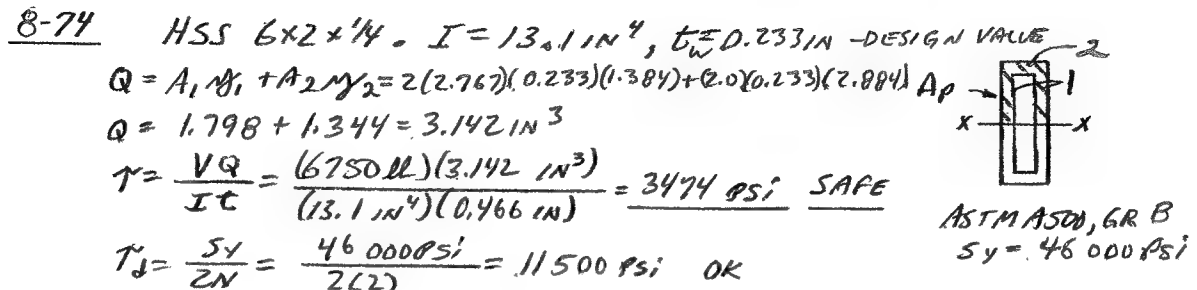 8-74 HSS 6x2x1/4. I = 13.1 IN⁴, tw = 0.233 IN - DESIGN VALUE
Q = A₁y₁ + A₂y₂ = 2(2.767)(0.233)(1.384)+(2.0)(0.233)(2.884)
Q = 1.798 + 1.344 = 3.142 IN³
τ = VQ/It = (6750 lb)(3.142 IN³)/(13.1 IN⁴)(0.466 IN) = 3474 psi SAFE
τd = Sy/2N = 46 000 PSi/2(2) = 11500 PSi OK
2
Ap 1
X X
ASTM A500, GR B
Sy = 46 000 PSi